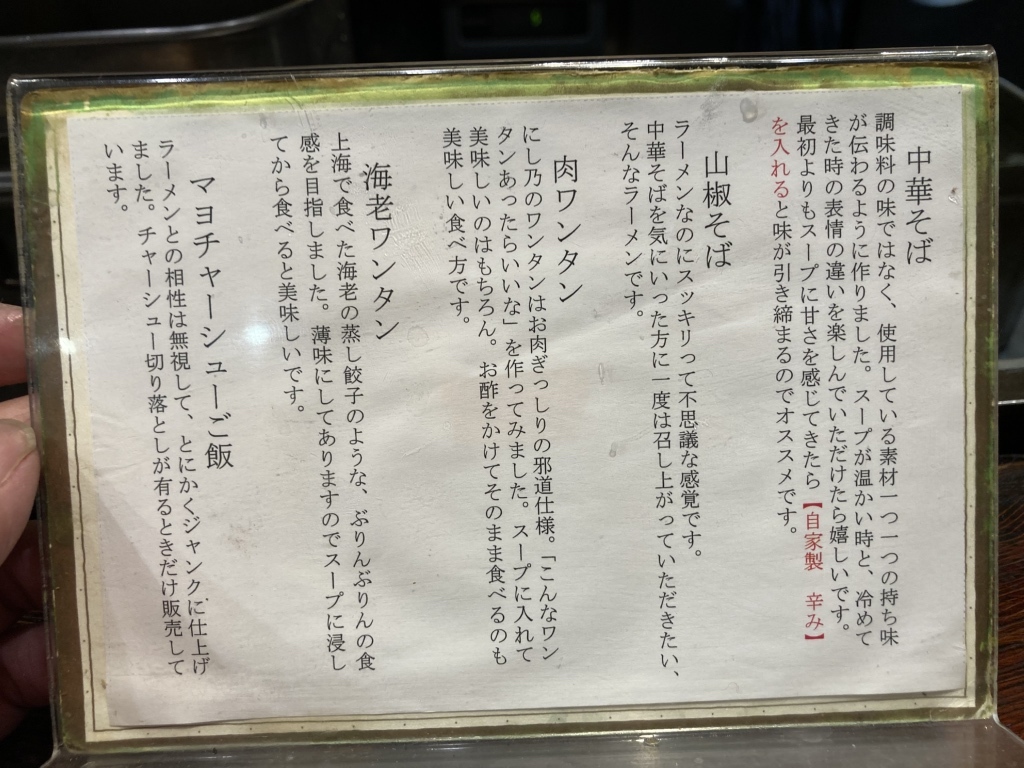 中華そば
調味料の味ではなく、使用している素材一つ一つの持ち味
が伝わるように作りました。スープが温かい時と、冷めて
きた時の表情の違いを楽しんでいただけたら嬉しいです。
最初よりもスープに甘さを感じてきたら【自家製　辛み】
を入れると味が引き締まるのでオススメです。
山椒そば
ラーメンなのにスッキリって不思議な感覚です。
中華そばを気にいった方に一度は召し上がっていただきたい、
そんなラーメンです。
肉ワンタン
にし乃のワンタンはお肉ぎっしりの邪道仕様。「こんなワン
タンあったらいいな」を作ってみました。スープに入れて
美味しいのはもちろん。お酢をかけてそのまま食べるのも
美味しい食べ方です。
海老ワンタン
上海で食べた海老の蒸し餃子のような、ぷりんぷりんの食
感を目指しました。薄味にしてありますのでスープに浸し
てから食べると美味しいです。
マヨチャーシューご飯
ラーメンとの相性は無視して、とにかくジャンクに仕上げ
ました。チャーシュー切り落としが有るときだけ販売して
います。